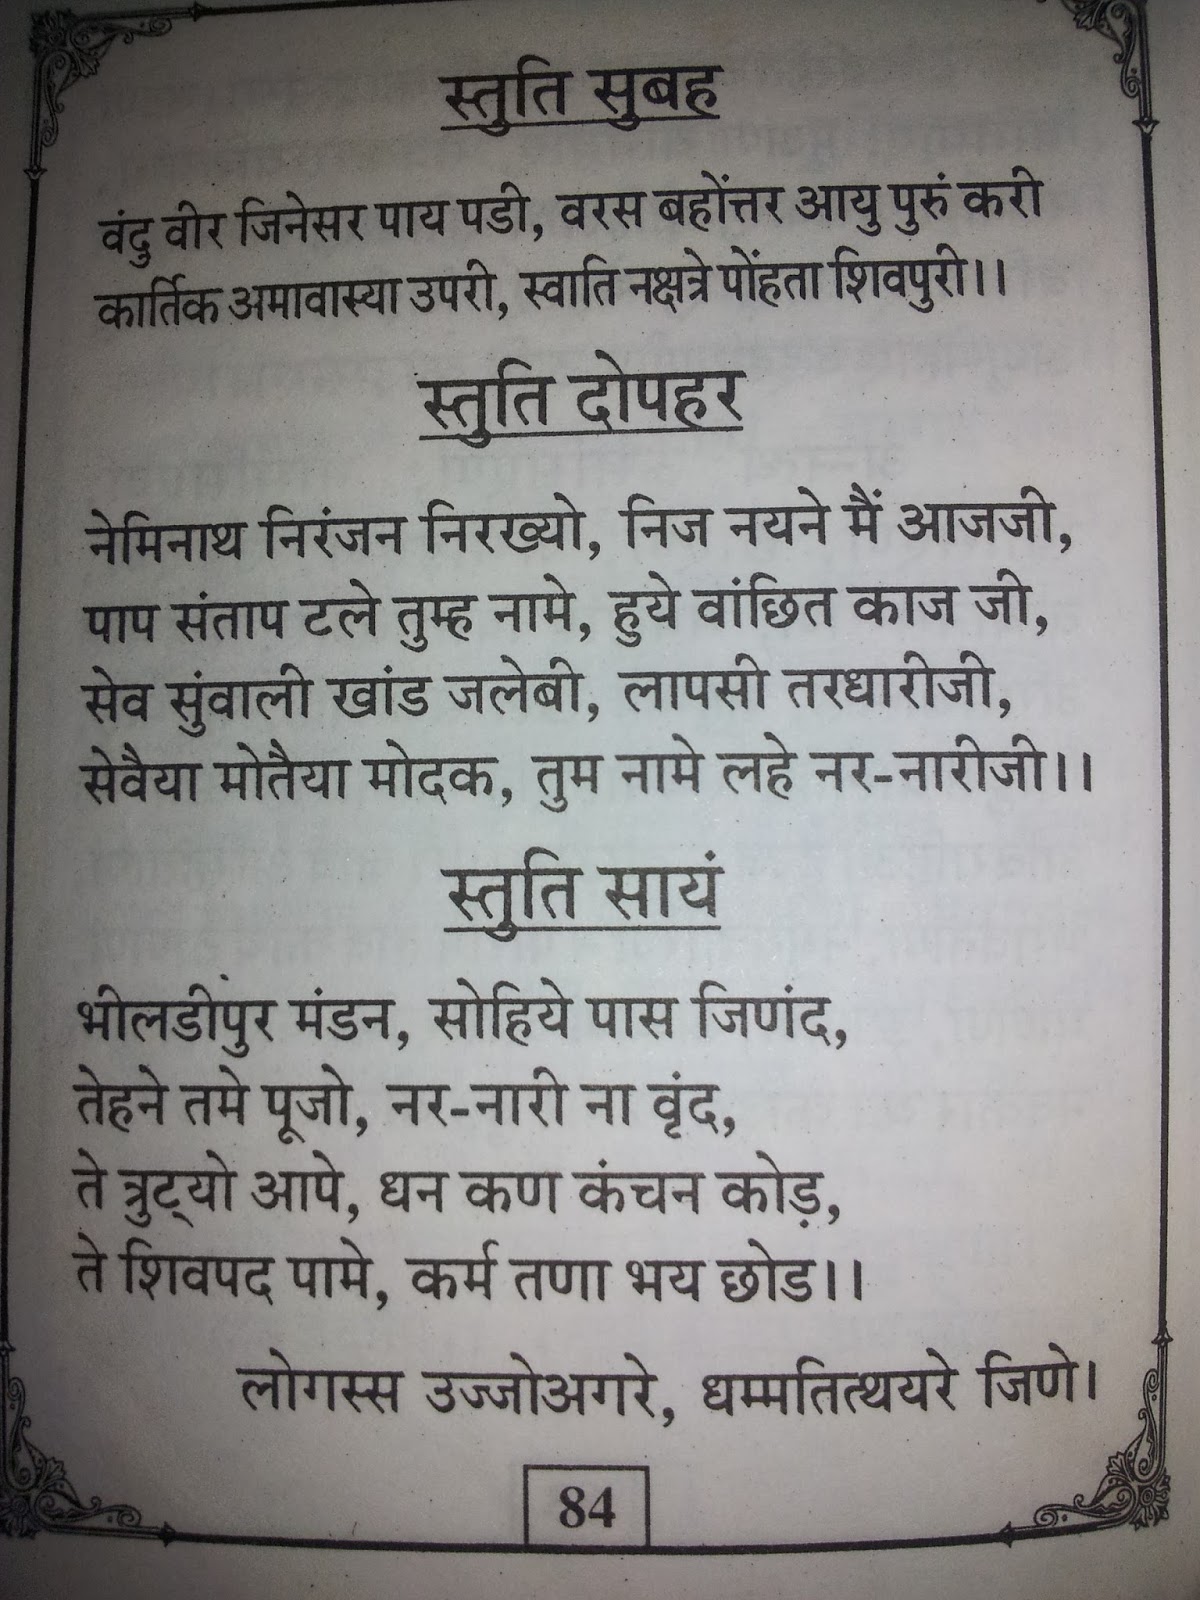 स्तुति सुबह
वंदु वीर जिनेसर पाय पडी, वरस बहोंत्तर आयु पुरुं करी
कार्तिक अमावास्या उपरी, स्वाति नक्षत्रे पोंहता शिवपुरी।।
स्तुति दोपहर
नेमिनाथ निरंजन निरख्यो, निज नयने मैं आजजी,
पाप संताप टले तुम्ह नामे, हुये वांछित काज जी,
सेव सुंवाली खांड जलेबी, लापसी तरधारीजी,
सेवैया मोतैया मोदक, तुम नामे लहे नर-नारीजी।।
स्तुति सायं
भीलडीपुर मंडन, सोहिये पास जिणंद,
तेहने तमे पूजो, नर-नारी ना वृंद,
ते त्रुट्यो आपे, धन कण कंचन कोड़,
ते शिवपद पामे, कर्म तणा भय छोड।।
लोगस्स उज्जोअगरे, धम्मतित्थयरे जिणे।
84